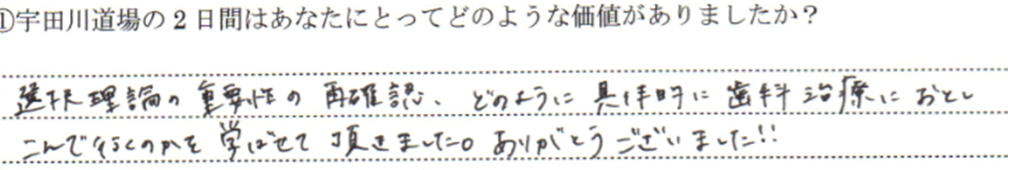 ①宇田川道場の2日間はあなたにとってどのような価値がありましたか？
選択理論の重要性の再確認、どのように具体的に歯科治療におとし
こんで行くのかを学ばせて頂きました。ありがとうございました!!